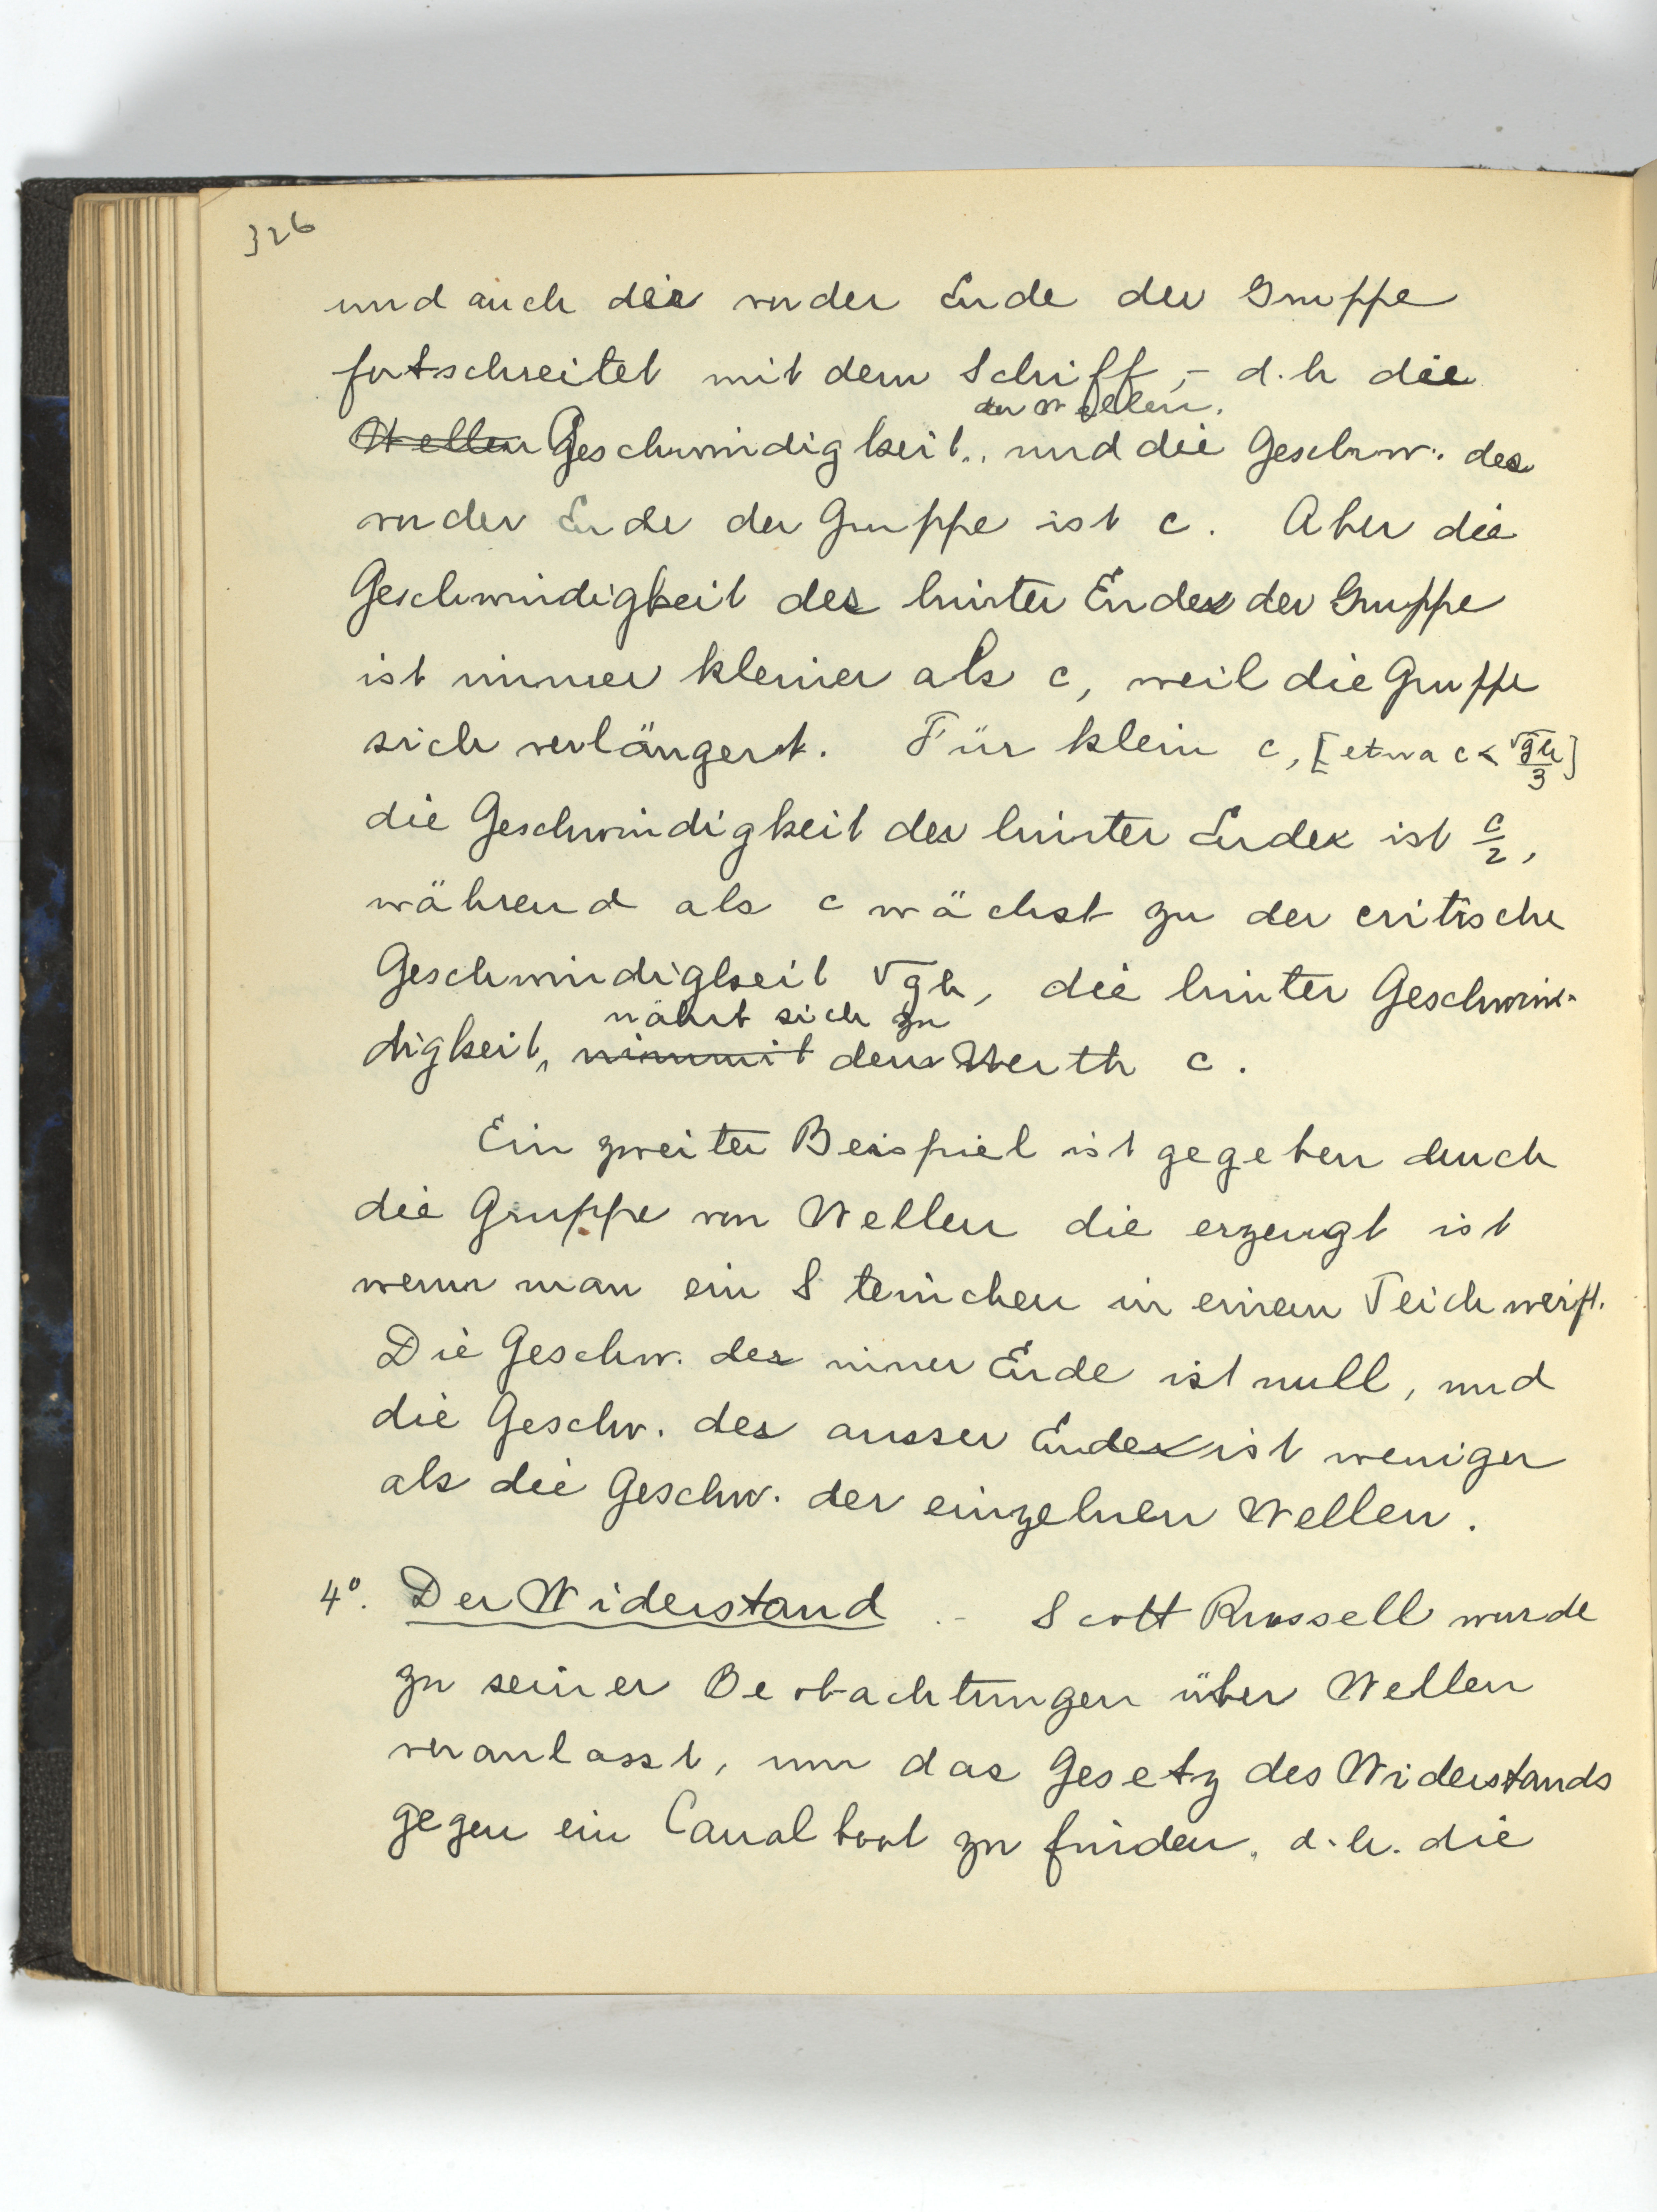 326
und auch der vorder Ende der Gruppe
fortschreitet mit dem Schiff, – d.h die
der Wellen.
Wellen Geschwindigkeit.. und die Geschw. des
vorder Ende der Gruppe ist c. Aber die
Geschwindigkeit des hinter Endes der Gruppe
ist immer kleiner als c, weil die Gruppe
sich verlängert. Für klein c, [etwa c < √gh/3]
die Geschwindigkeit des hinter Endes ist c/2,
während als c wächst zu der critische
Geschwindigkeit √gh, die hinter Geschwin-
nährt sich zu
digkeit, nimmit dem Werth c.
Ein zweiter Beispiel ist gegeben durch
die Gruppe von Wellen die erzeugt ist
wenn man ein Steinchen in einem Teich wirft.
Die Geschw. des inner Ende ist null, und
die Geschw. des ausser Endes ist weniger
als die Geschw. der einzelnen Wellen.
4°. Der Widerstand. – Scott Russell wurde
zu seiner Beobachtungen über Wellen
veranlasst, um das Gesetz des Widerstands
gegen ein Canalboot zu finden, d.h. die